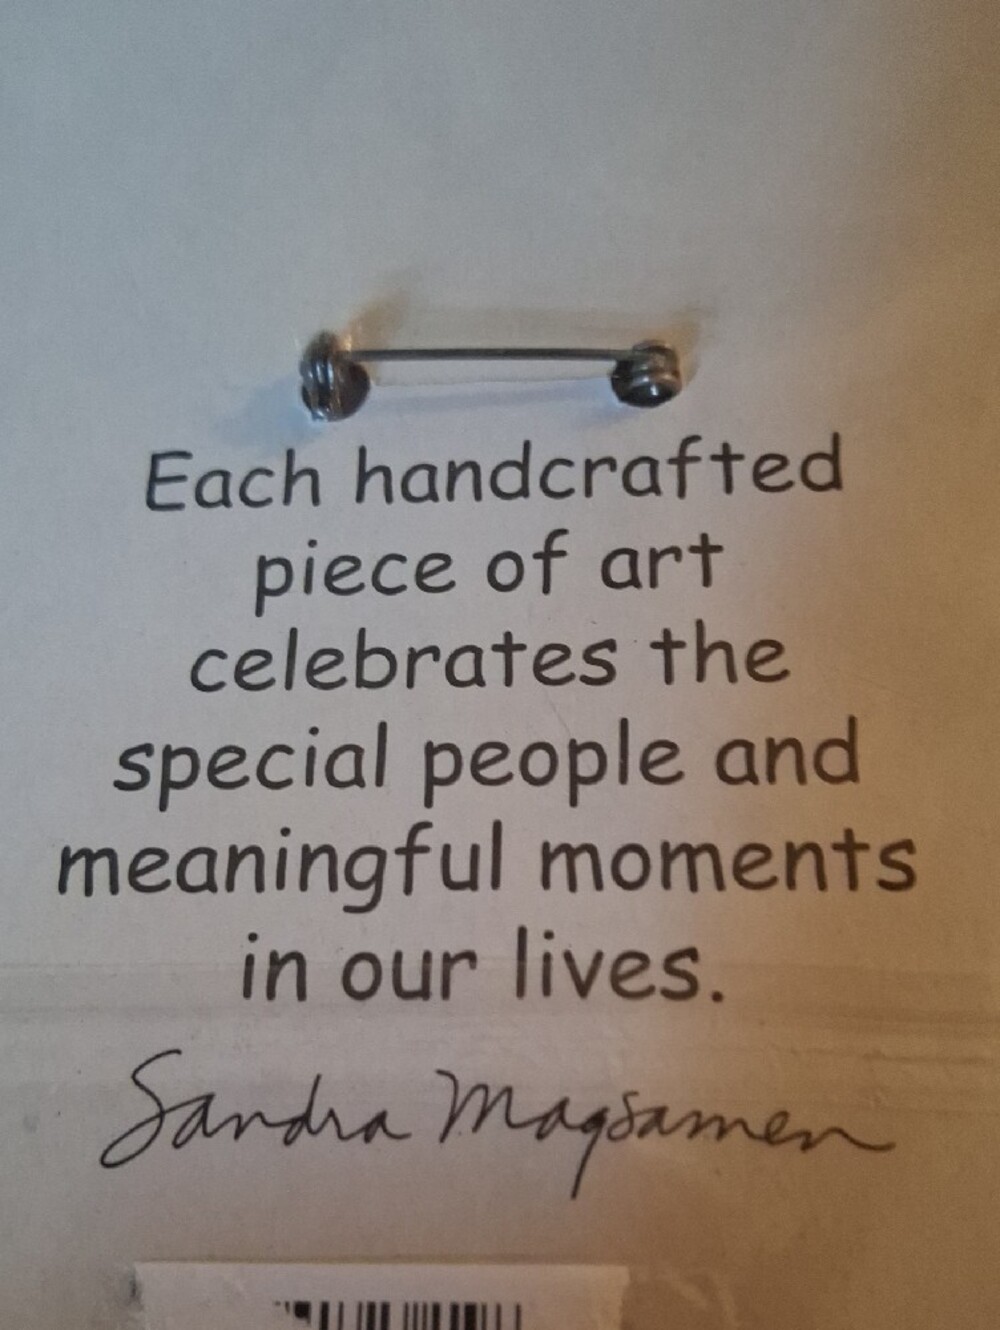 Each handcrafted
piece of art
celebrates the
special people and
meaningful moments
in our lives.
Sandra Magsamen